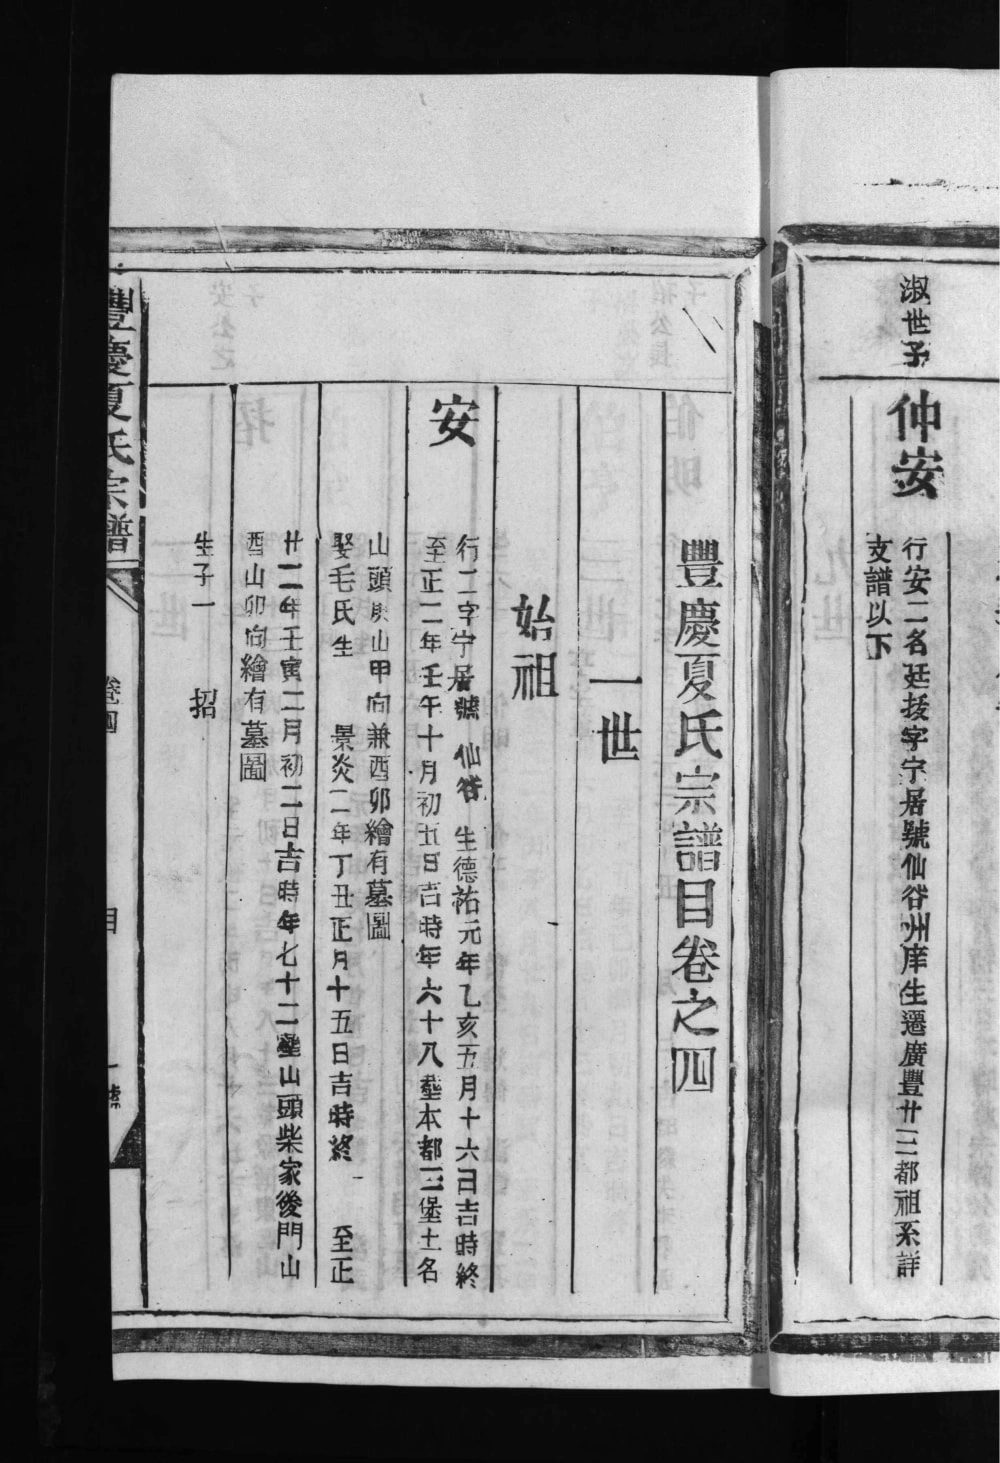 淑世子
仲安
行安二名廷拔字宁居號仙谷州庠生遷廣豐廿三都祖系詳
支譜以下
豐慶夏氏宗譜目卷之四
一世
始祖
安
行一字宁居號仙谷生德祐元年乙亥五月十六日吉時終
至正二年壬午十月初五日吉時年六十八塟本都三堡土名
山頭庚山甲向兼酉卯繪有墓圖
娶毛氏生 景炎二年丁丑正月十五日吉時終 至正
廿二年壬寅二月初二日吉時年七十二塟山頭柴家後門山
酉山卯向繪有墓圖
生子一 招
豐慶夏氏宗譜
卷四